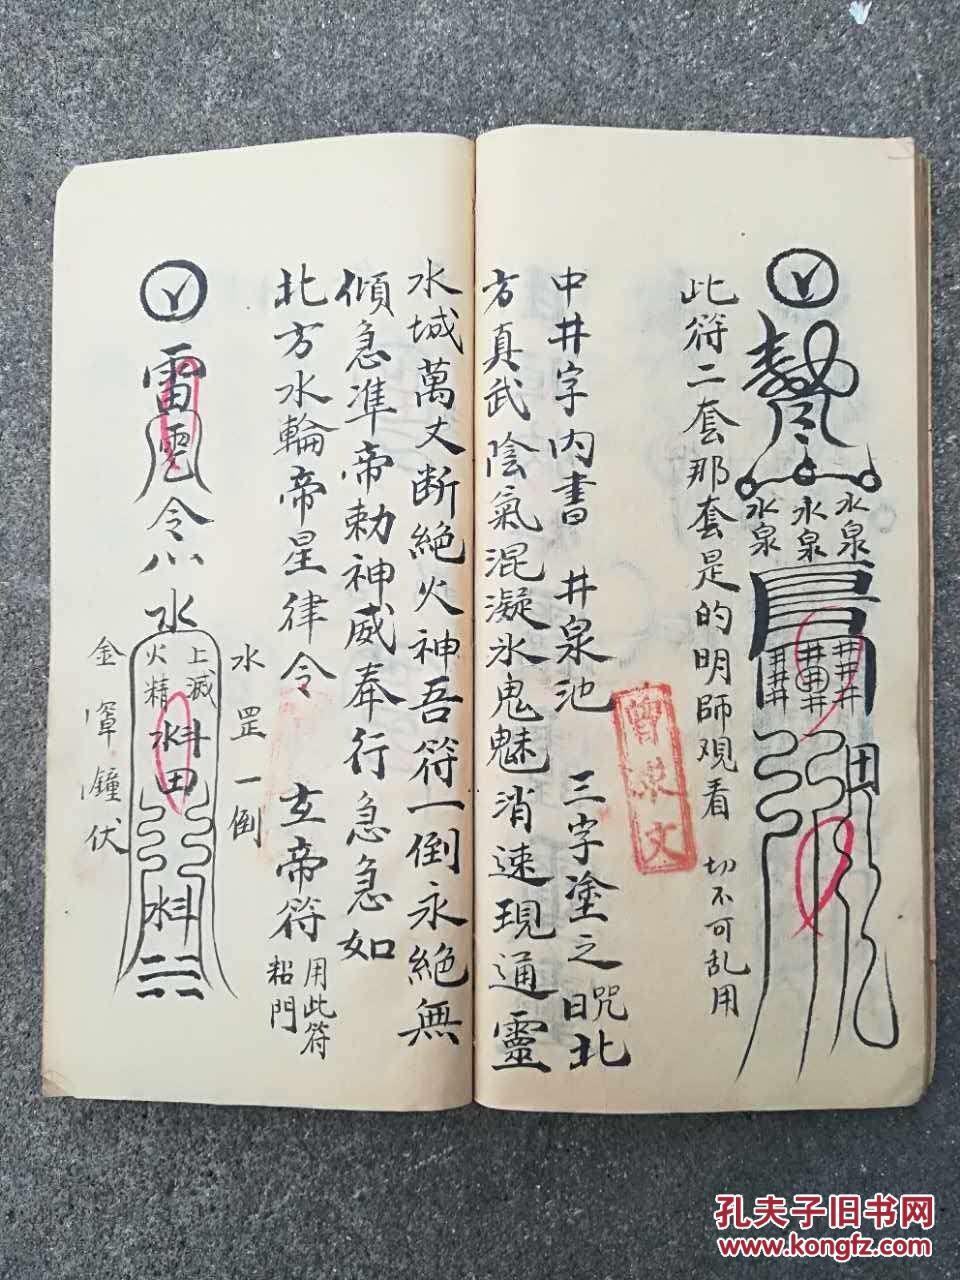 水泉
水泉
水泉
井井井
田
此符二套那套是的明師观看 切不可乱用
曾
文
中井字内書 井泉池 三字塗之 咒曰北
方真武陰氣混凝氷鬼魅消速現通靈
水城萬丈断絶火神吾符一倒永絶無
傾急準帝勅神威奉行急急如
北方水輪帝星律令 玄帝符 用此符
粘門
雷
令
水
水罡一倒
上滅
火精
田
金 鐘伏
孔夫子旧书网
www.kongfz.com